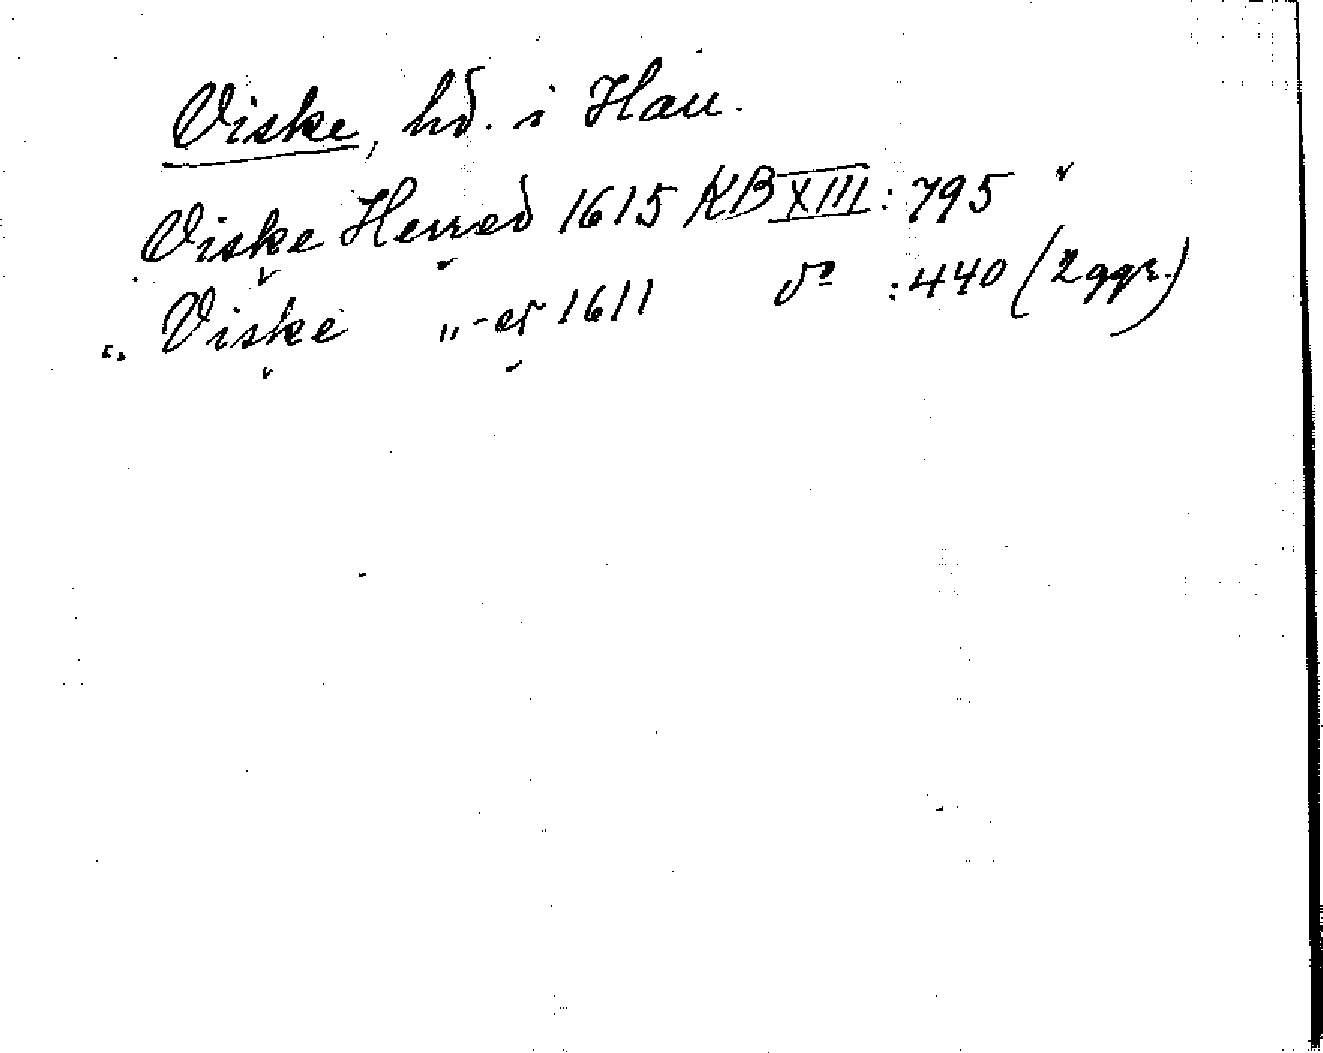 Viske, hd. i Hall.
Viske Herred 1615 KB XIII: 795
Viske „-et 1611 do : 440 (2 ggr.)